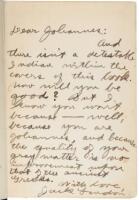 Dear Johannes:
And
there isn't a detestable
Indian within the
covers of this book.
Now will you be
good? But I
know you won't
because — well,
because you are
Johannes, and because
the quality of your
gray matter is no
improvement upon
that of the ancient
Greeks.
With love,
Jack London